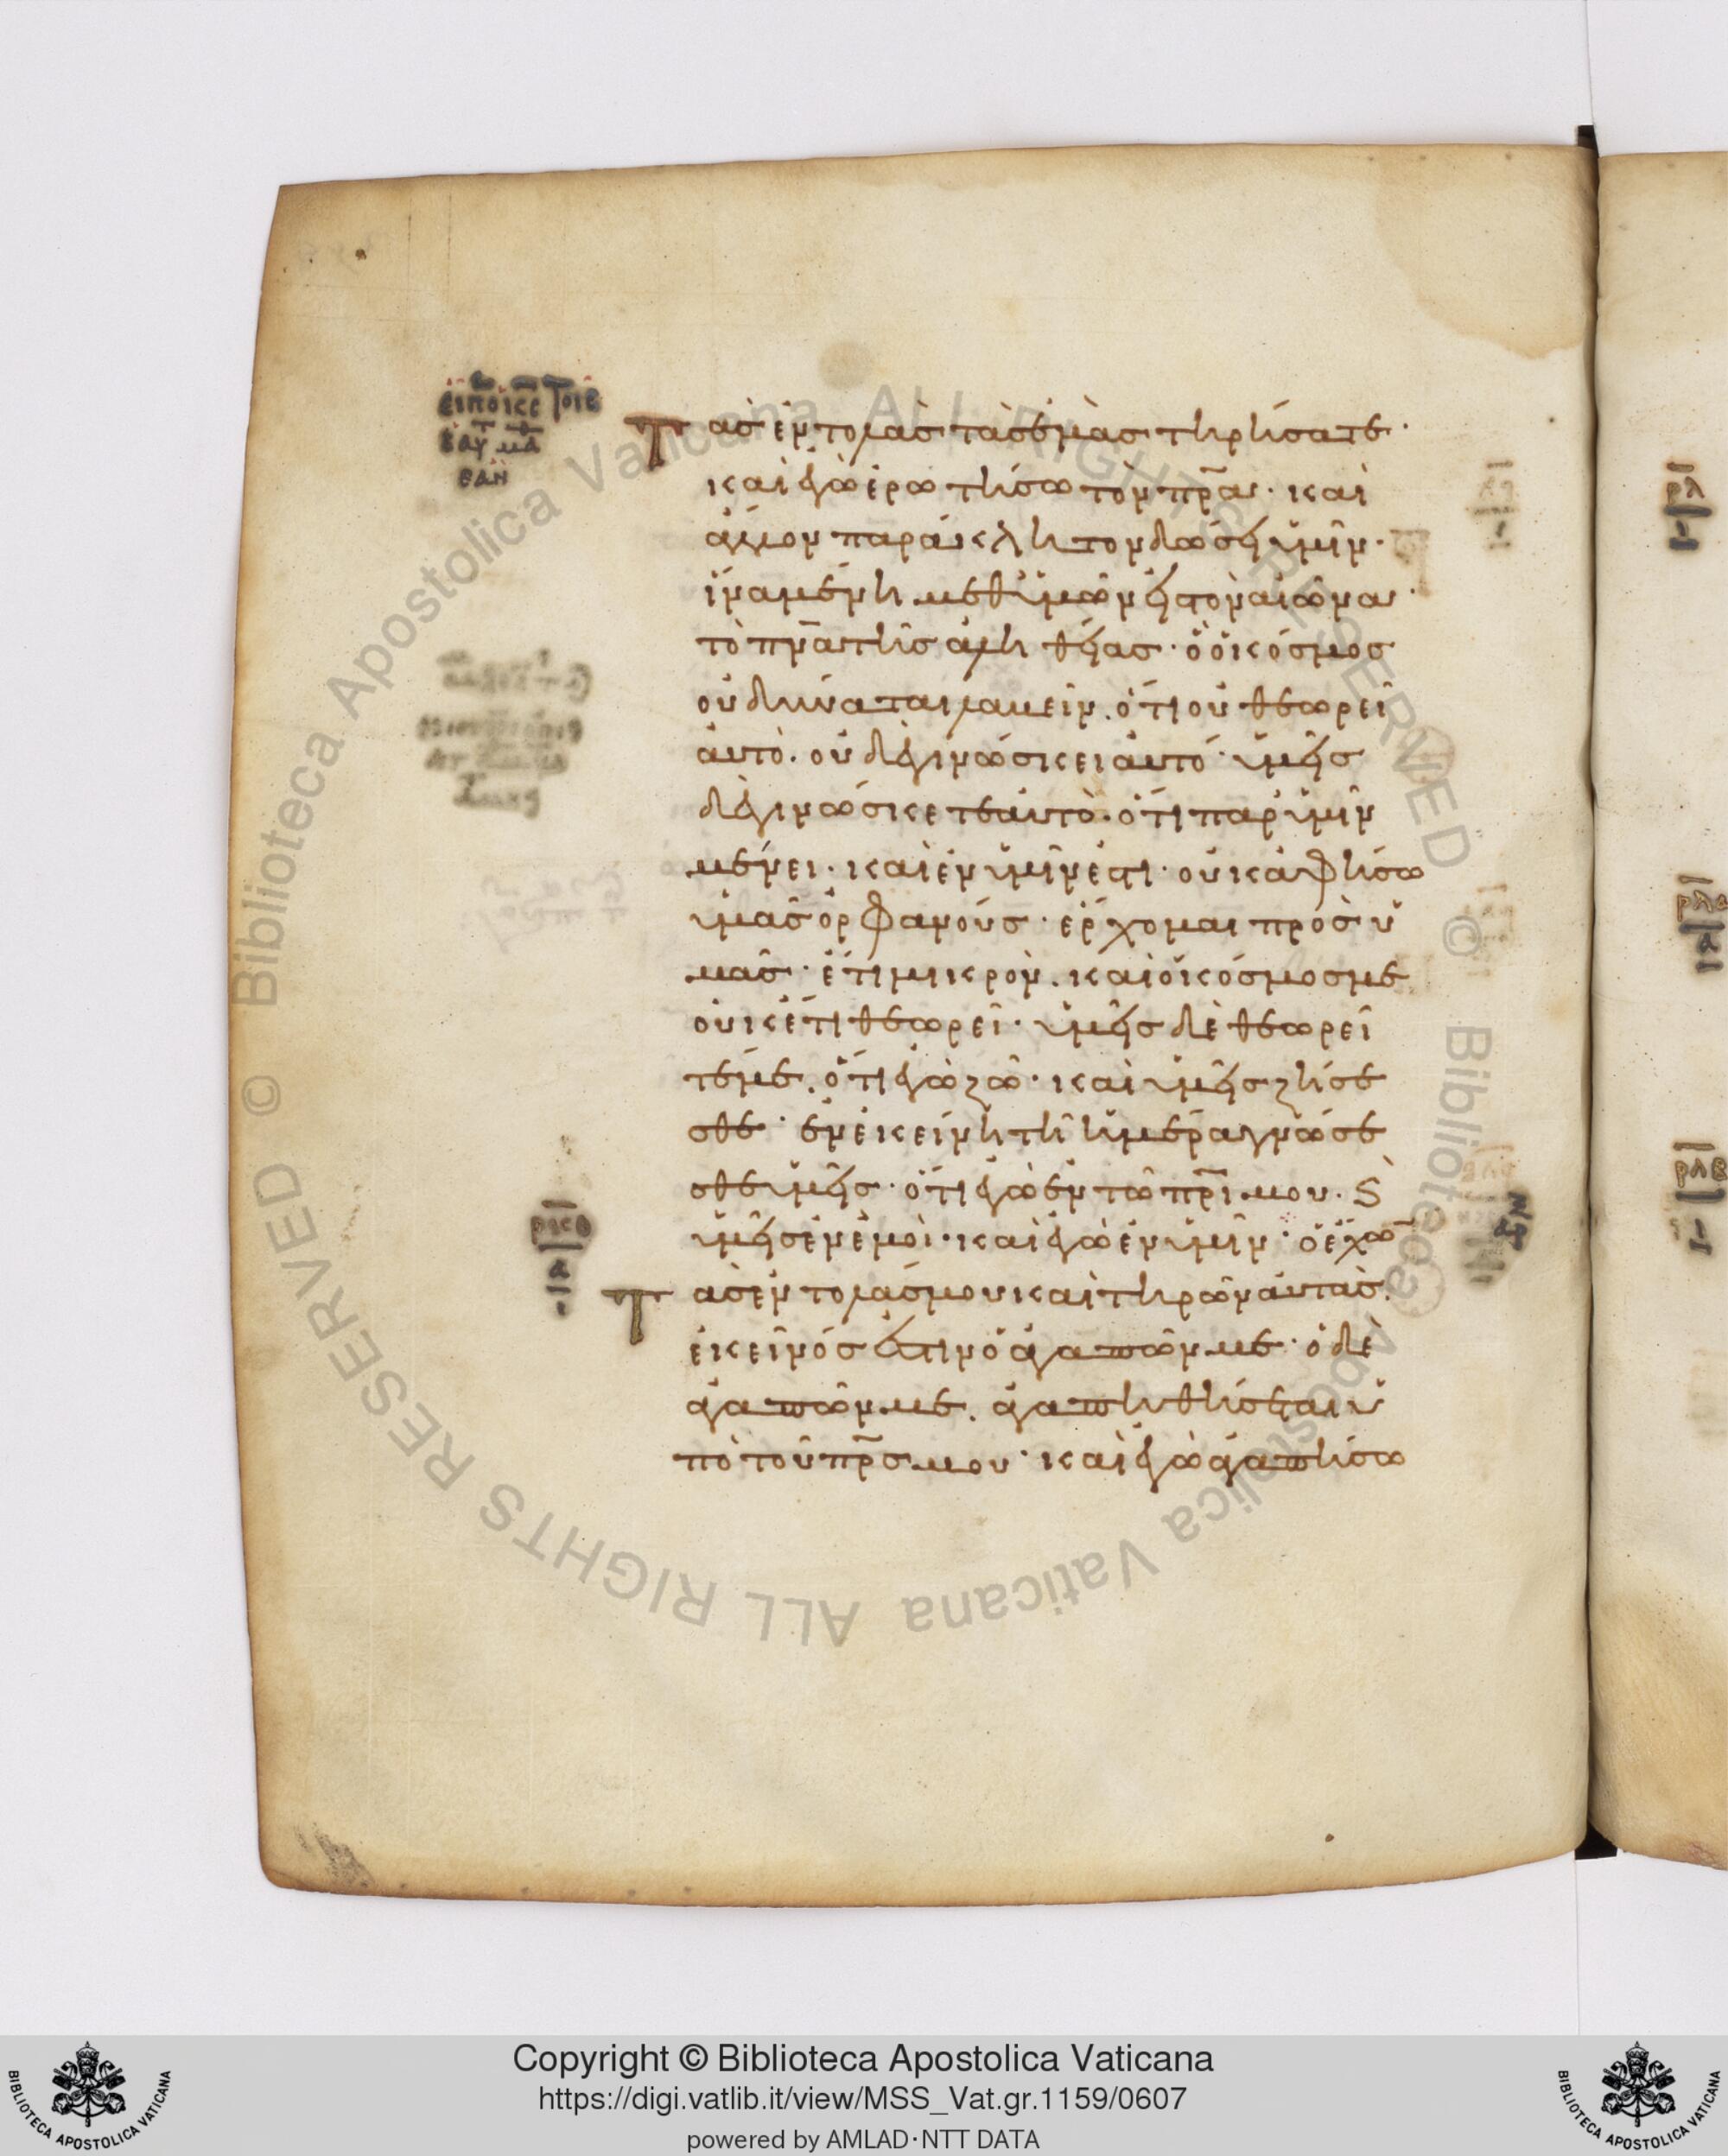 Τὰς ἐντολὰς τὰς ἐμὰς τηρήσατε·
καὶ ἐγὼ ἐρωτήσω τὸν πρ̅α· καὶ
ἄλλον παράκλητον δώσει ὑμῖν·
ἵνα μένη μεθ ὑμῶν εἰς τὸν αἰῶνα·
τὸ πν̅α τῆς ἀληθείας· ὃ ὁ κόσμος
οὐ δύναται λαβεῖν. ὅτι οὐ θεωρεῖ
αὐτὸ. οὐδὲ γινώσκει αὐτό· ὑμεῖς
δὲ γινώσκετε αὐτὸ. ὅτι παρ ὑμῖν
μένει· καὶ ἐν ὑμῖν ἐστι· οὐκ ἀφήσω
ὑμᾶς ὀρφανούς· ἔρχομαι πρὸς ὑ
μᾶς· ἔτι μικρὸν. καὶ ὁ κόσμος με
οὐκέτι θεωρεῖ· ὑμεῖς δὲ θεωρεῖ
τέ με. ὅτι ἐγὼ ζῶ· καὶ ὑμεῖς ζήσε
σθε· ἐν ἐκείνη τῆ ἡμέρα γνώσε
σθε ὑμεῖς· ὅτι ἐγὼ ἐν τῶ πρ̅ι μου· ϛ̀
ὑμεῖς ἐν ἐμοὶ· καὶ ἐγὼ ἐν ὑμῖν· ὁ ἔχω̅
Τὰς ἐντολάς μου καὶ τηρῶν αὐτὰς.
ἐκεῖνός ἐστιν ὁ ἀγαπῶν με· ὁ δὲ
ἀγαπῶν με. ἀγαπηθήσεται ὑ
πὸ τοῦ πρ̅ς μου· καὶ ἐγὼ ἀγαπήσω
Copyright © Biblioteca Apostolica Vaticana
https://digi.vatlib.it/view/MSS_Vat.gr.1159/0607
powered by AMLAD·NTT DATA
BIBLIOTECA APOSTOLICA VATICANA
BIBLIOTECA APOSTOLICA VATICANA
© Biblioteca Apostolica Vaticana ALL RIGHTS RESERVED
© Biblioteca Apostolica Vaticana ALL RIGHTS RESERVED